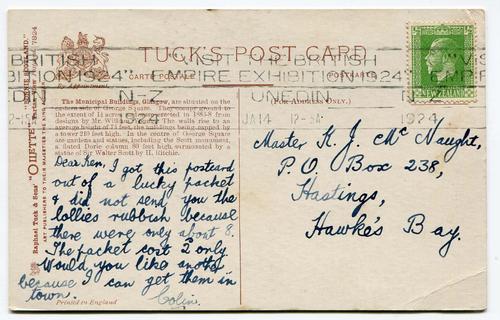 TUCK'S POST CARD
CARTE POSTALE
POSTKARTE
By Appointment
NEW ZEALAND
VISIT THE BRITISH
EMPIRE EXHIBITION 1924
N-Z
1924
JA14
1924
(FOR ADDRESS ONLY.)
Raphael Tuck & Sons' "OILETTE"
ART PUBLISHERS TO THEIR MAJESTIES THE KING
The Municipal Buildings, Glasgow, are situated on the
eastern side of George Square. They occupy ground to
the extent of 11 acres
designs by Mr. William
average height of 75 feet, the buildings being capped by
a tower 219 feet high. In the centre of George Square
are gardens and statues, including the Scott monument,
a fluted Doric column 80 feet high, surmounted by a
statue of Sir Walter Scott by H. Ritchie.
Dear Ken, I got this postcard
out of a lucky packet
I did not send you the
lollies rubbish because
there were only about 8.
The packet cost 2 only.
Would you like another
because I can get them in
town. Colin.
Printed in England
Master K. J. McNaught,
P.O. Box 238,
Hastings,
Hawke's Bay.